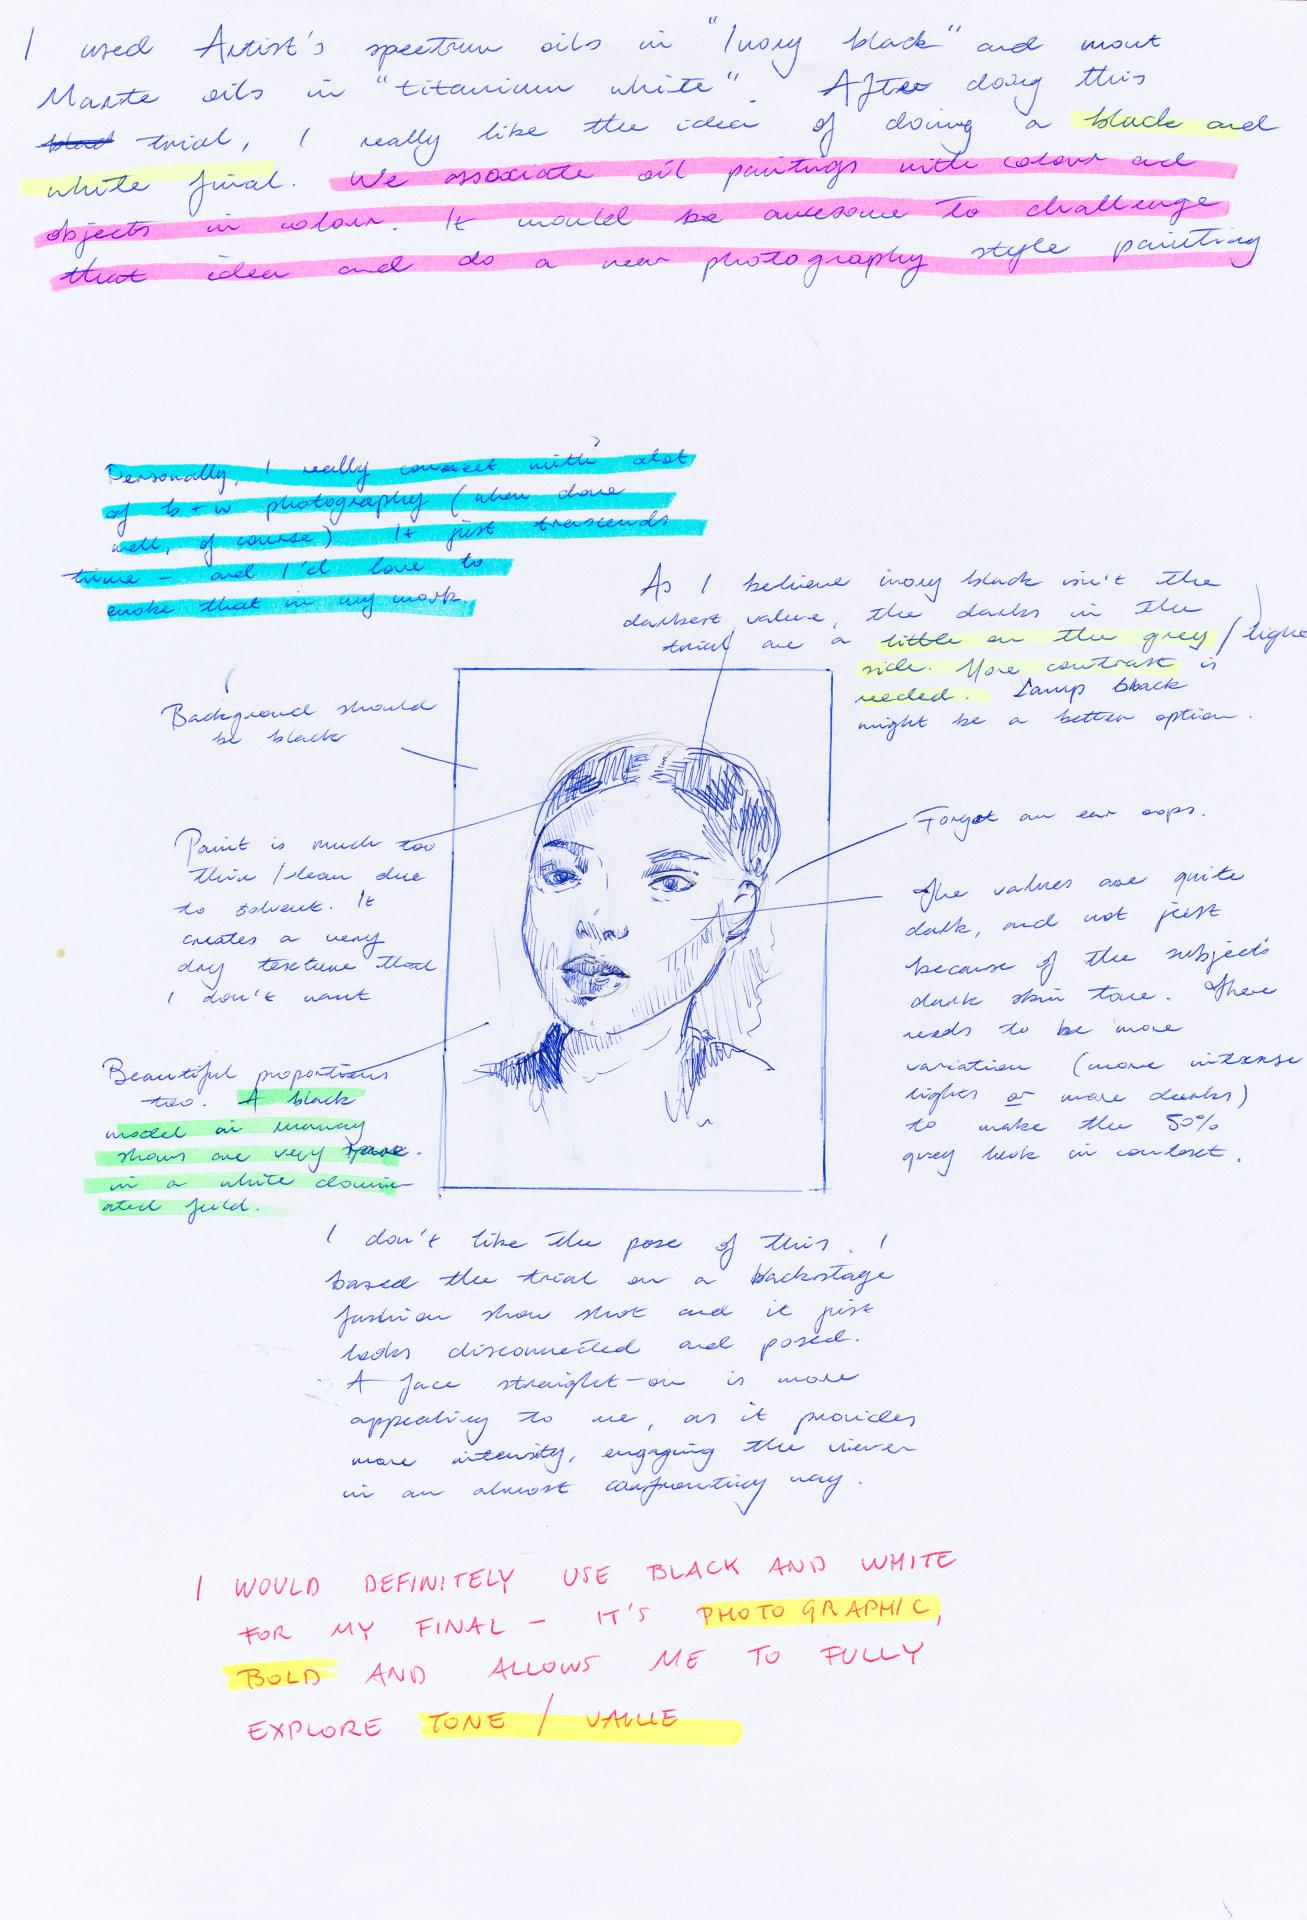 I used Artist's spectrum oils in "Ivory black" and mont
Marte oils in "titanium white". After doing this
trial, I really like the idea of doing a black and
white final. We associate oil paintings with colour and
objects in colour. It would be awesome to challenge
that idea and do a near photography style painting
Personally, I really connect with alot
of b+w photography (when done
well, of course) It just trascends
time - and I'd love to
evoke that in my work.
As I believe ivory black isn't the
darkest value, the darks in the
trial are a little on the grey / lighter
side. More contrast is
needed. Lamp black
might be a better option.
Background should
be black
Forgot an ear oops.
Paint is much too
thin / lean due
to solvent. It
creates a very
dry texture that
I don't want
The values are quite
dark, and not just
because of the subject's
dark skin tone. There
needs to be more
variation (more intense
lights or more darks)
to make the 50%
grey look in context.
Beautiful proportions
too. A black
model in runway
shows are very rare.
in a white domin-
ated feild.
I don't like the pose of this. I
based the trial on a backstage
fashion show shot and it just
looks disconnected and posed.
A face straight-on is more
appealing to me, as it provides
more intensity, engaging the viewer
in an almost confronting way.
I WOULD DEFINITELY USE BLACK AND WHITE
FOR MY FINAL - IT'S PHOTOGRAPHIC,
BOLD AND ALLOWS ME TO FULLY
EXPLORE TONE / VALUE